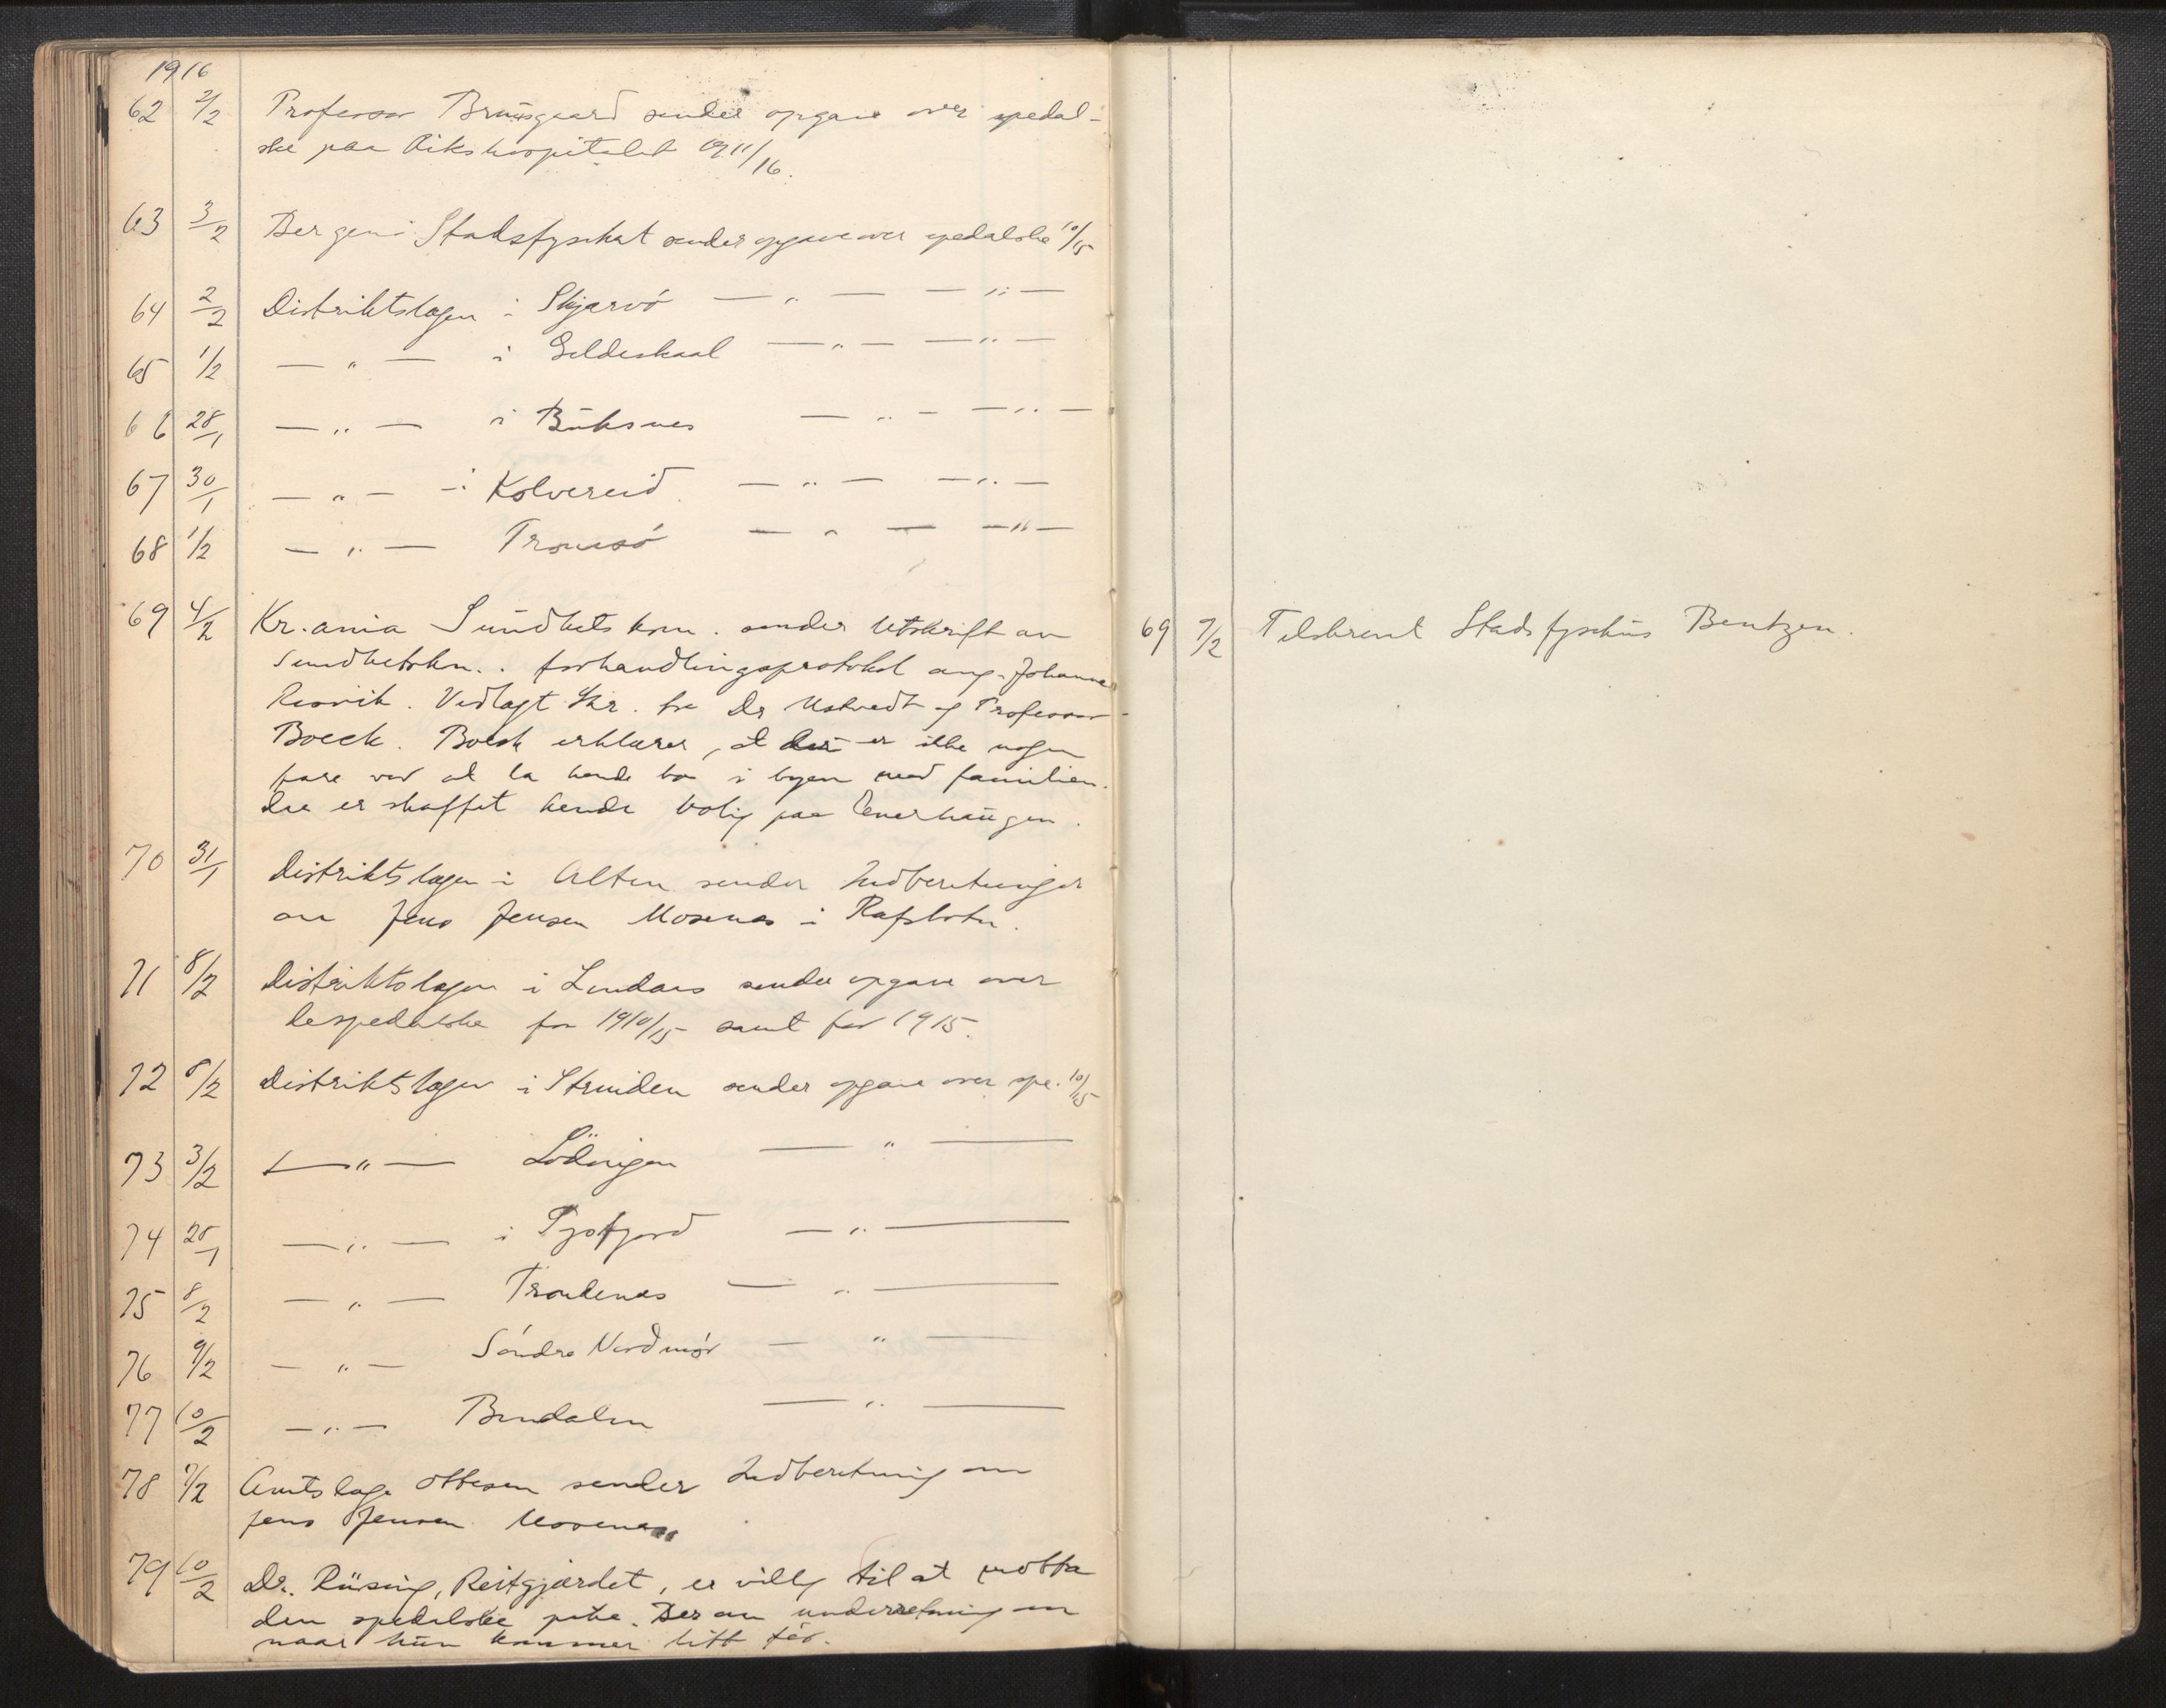 1916
62 2/2 Professor Bruusgaard sender opgave over spedal-
ske paa Rikshospitalet 1911/16.
63 3/2 Bergens Stadsfysikat sender opgave over spedalske 10/15
64 2/2 Distriktslægen i Skjærvö — " — — " —
65 1/2 — " — i Gildeskaal — " — — " —
66 28/1 — " — i Buksnes — " — — " —
67 30/1 — " — i Kolvereid — " — — " —
68 1/2 — " — Tromsö — " — — " —
69 4/2 Kr.ania Sundhetskom. sender Utskrift av
Sundhetskn.. forhandlingsprotokol ang. Johanna
Vedlagt Skr. fra Dr Ustvedt og Professor
Boeck. Boeck erklærer, at der er ikke nogen
fare ved at la hende bo i byen med familien.
Der er skaffet hende bolig paa Enerhaugen.
70 31/1 Distriktslægen i Alten sender Indberetninger
om Jens Jensen Mosenes i Rafsbotn.
71 8/2 Distriktslægen i Lindaas sender opgave over
de spedalske for 1910/15 samt for 1915.
72 8/2 Distriktslægen i Strinden sender opgave over spe. 10/15
73 3/2 — " — Lödingen — " —
74 28/1 — " — i Tysfjord — " —
75 8/2 — " — Trondenæs — " —
76 9/2 — " — Söndre Nordmör — " —
77 10/2 — " — Bindalen — " —
78 7/2 Amtslæge Ottesen sender Indberetning om
Jens Jensen Mosenes
79 10/2 Dr. Rüsing, Reitgjærdet, er villig til at motta
den spedalske pike. Ber om underretning om
naar hun kommer litt før.
69 7/2 Tilskrevet Stadsfysikus Bentzen.